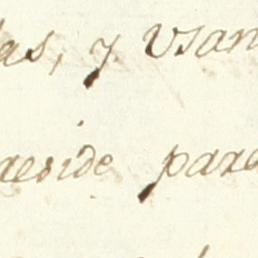 as, y usan
reside para